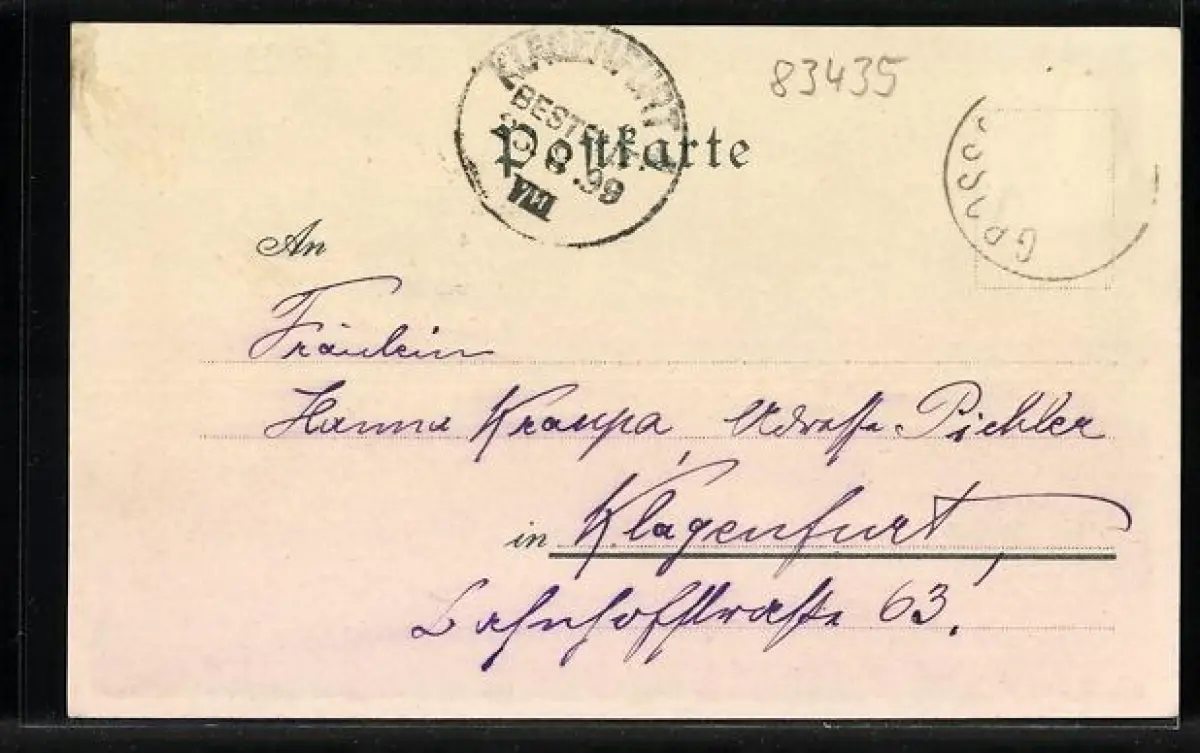 83435
KLAGENFURT
BESTELLT
8.99
VIII
Postkarte
GROSS
An
Fräulein
Hanna Kraupa, Adresse Pichler
in Klagenfurt,
Bahnhofstrasse 63.